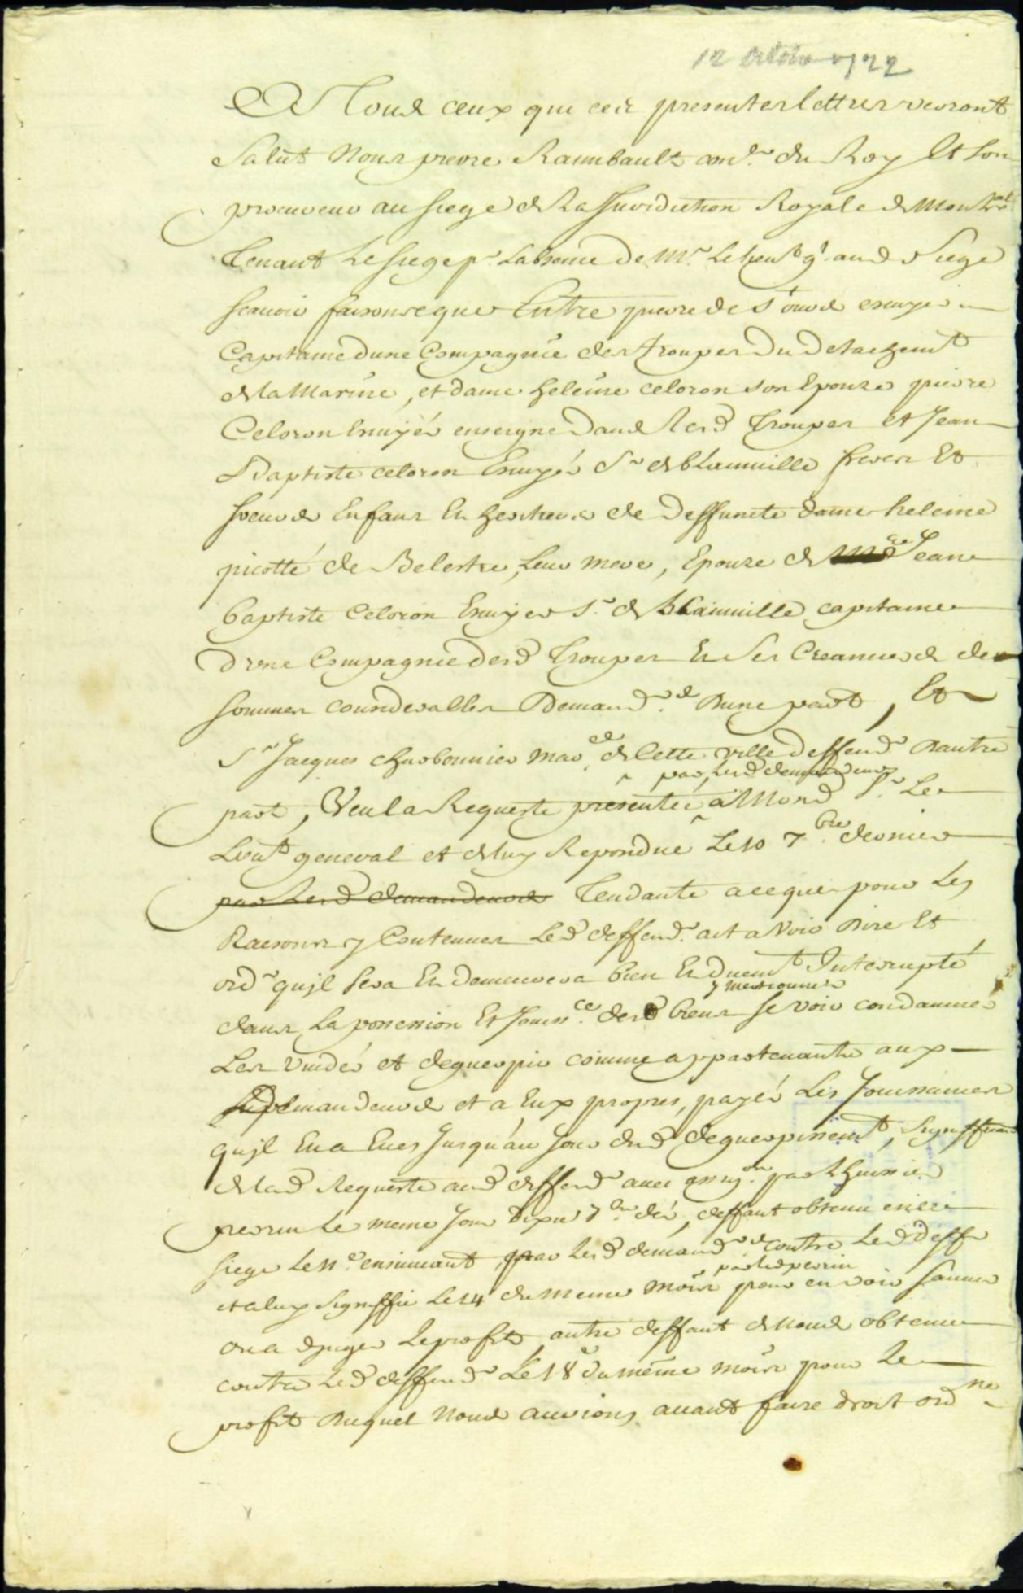 12 octobre 1722
A Tous ceux que ces presentes lettres verront
Salut Nous pierre Raimbault con.er du Roy Et son
procureur au siege de La Juridiction Royale de Montreal
Tenant Le siege p.r Labsence de Mr. Le lieut.t g.l aud. Siege
scauoir faisons que Entre pierre de escuyer
Capitaine dune Compagnie des trouppes du detachem.t
de la Marine, et dame heleine celoron son Epouse pierre
Celoron Ecuyer enseigne dans Lesd. Trouppes et Jean
Baptiste celoron Ecuyer S.r de blainuille freres Et
soeurs Enfans Et heritiers de deffuncte dame heleine
picotté de Belestre, Leur mere, Epouse de Jean
baptiste Celoron Ecuyer S.r de blainuille capitaine
d'vne Compagnie desd. Trouppes Et Ses Creanciers de
sommes considerables Demand.rs Dune part, Et
S.r Jacques charbonnier mar.d de Cette ville deffend.r Dautre
par lesd. demandeurs
part, Veu la Requeste presentée a Mond. S.r Le
Lieut.t general et de luy Repondue Le 10 7bre dernier
par Lesd. demandeurs Tendante a ce que pour Les
Raisons y Contenues Led. deffend.r ait a Voir Dire Et
ord.r qu'jl sera Et demeurera bien Et duem.t Interrupté
y mentionnés
dans La possession Et Jouiss.ce desd. biens se voir condamner
Les vuider et deguerpir comme appartenants aux
demandeurs et a Eux propres, payer Les Jouissances
qu'jl En a Eues Jusqu'au Jour dud. deguerpissem.t, Signiffication
de lad. Requeste aud. deffend.r auec assig.on par L'huissier
perrin Le meme Jour Dixe 7bre der, deffaut obtenu en ce
siege Le 11e ensuiuant par Lesd. demand.rs contre Led. deffr
par led. perrin
et a luy Signiffié Le 14 du meme mois pour en voir
ajuger Le profit, autre deffaut de Nous obtenu
contre Led. deffend.r Le 18e du même mois pour Le
profit Duquel Nous aurions auant faire droit ord.né